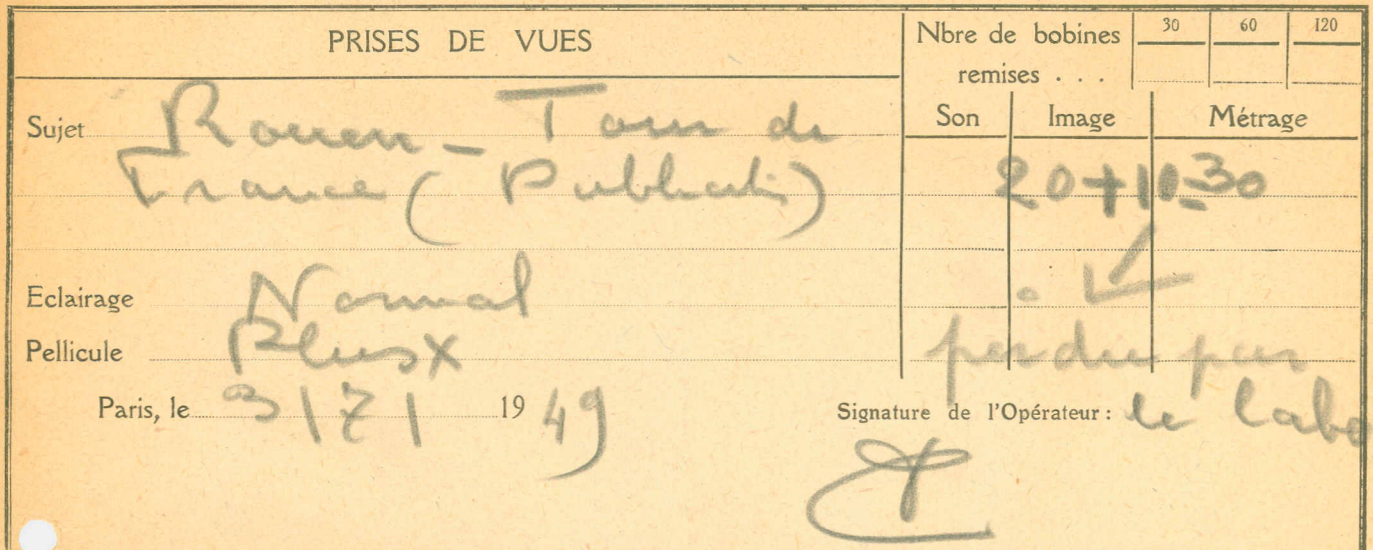 PRISES DE VUES
Nbre de bobines remises . . .
30 60 120
Son Image Métrage
Sujet Rouen - Tour de
France (Publicité)
20+10=30
Eclairage Normal
Pellicule Plus X
perdu par
le labo
Paris, le 3/7/ 1949
Signature de l'Opérateur :